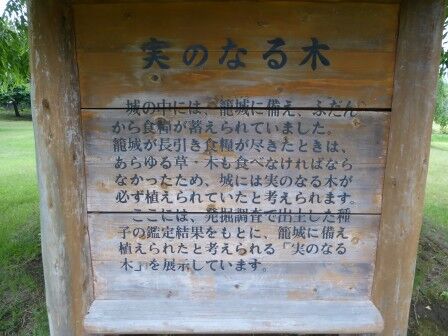 実のなる木
城の中には、籠城に備え、ふだん
から食糧が蓄えられていました。
籠城が長引き食糧が尽きたときは、
あらゆる草・木も食べなければなら
なかったため、城には実のなる木が
必ず植えられていたと考えられます。
ここには、発掘調査で出土した種
子の鑑定結果をもとに、籠城に備え
植えられたと考えられる「実のなる
木」を展示しています。